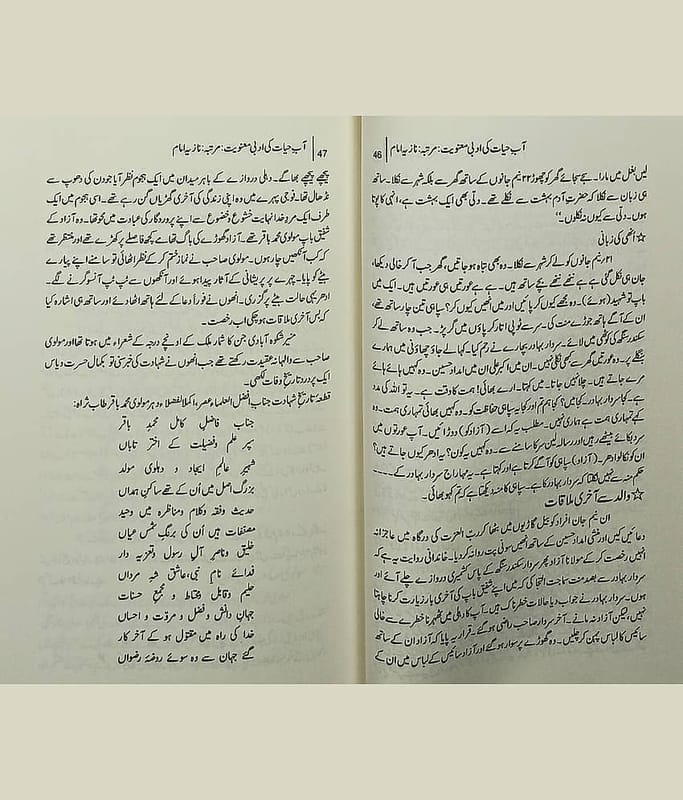 46 آب حیات کی ادبی معنویت: مرتبہ: نازیہ امام
لیس بغل میں مارا۔ سجے سجائے گھر کو چھوڑ ۲۲ نیم جانوں کے ساتھ گھر سے بلکہ شہر سے نکلا۔ ساتھ
ہی زبان سے نکلا کہ حضرتِ آدم بہشت سے نکلے تھے۔ دلی بھی ایک بہشت ہے، انہی کا پوتا
ہوں۔ دلی سے کیوں نہ نکلوں۔"
☆ انھی کی زبانی
۲۱ نیم جانوں کو لے کر شہر سے نکلا۔ وہ بھی تباہ ہو جاتیں، گھر جب آ کر خالی دیکھا،
جان ہی نکل گئی ہے ننھے ننھے بچے ساتھ ہیں۔ بے بے عورتیں ہی عورتیں ہیں۔ ایک میں
باپ تو شہید (ہوئے)۔ وہ مجھے کیوں کر پائیں اور میں انھیں کیوں کر؟ سپاہی تین چار ساتھ تھے،
ان کے آگے ہاتھ جوڑے منت کی۔ سر سے ٹوپی اتار کر پاؤں میں گر پڑا۔ جب وہ ساتھ لے کر
سکندر سنگھ کی کوٹھی میں لائے۔ سردار بہادر بچارے نے رحم کیا۔ کہا لے جاؤ چھاؤنی میں ہمارے
بنگلے پر۔ وہ عورتیں گھر سے کبھی نکلی نہیں۔ ان میں اکبر علی ان میں امداد حسین۔ وہ کہیں ہائے ہائے
مرے جاتے ہیں۔ چلا نہیں جاتا۔ میں کہتا۔ ارے بھائی! ہمت کا وقت ہے۔ یہ تو اللہ کی مدد
ہے۔ کیا سردار بہادر۔ کجا میں؟ کجا ہم تم اور کجا یہ سپاہی حفاظت کو۔ وہ کہیں بھائی تمہاری ہمت۔ وہ
کہے تمہاری ہمت ہے ہماری نہیں۔ مطلب یہ کہ اسے (آزاد کو) دوڑائیں۔ آپ عورتوں میں
سر دبکائے بیٹھے رہیں اور رسالہ لین سر کا سامنے سے۔ وہ کہیں یہ کون؟ یہ ادھر کیوں جاتے ہیں؟
ان کو نکالو ادھر۔ (آزاد) سپاہی کو آگے کرتا ہے اور کہتا ہے۔ یہ مہاراج سردار بہادر کے۔۔۔۔۔
حکم منہ سے نہیں نکلتا کہ سردار بہادر کا ہے۔ سپاہی کا منہ دیکھتا ہے کہ تم کہو بھائی۔
☆ والد سے آخری ملاقات
ان نیم جان افراد کو بیل گاڑیوں میں بٹھا کر رب العزت کی درگاہ میں عاجزانہ
دعائیں کیں اور منشی امداد حسین کے ساتھ انھیں سونی پت روانہ کر دیا۔ خاندانی روایت یہ ہے کہ
انہیں رخصت کر کے مولانا آزاد پھر سردار سکندر سنگھ کے پاس کشمیری دروازے چلے آئے اور
سردار بہادر سے بعد منت سماجت التجا کی کہ میں اپنے شفیق باپ کی آخری بار زیارت کرنا چاہتا
ہوں۔ سردار بہادر نے جواب دیا حالات خطرناک ہیں۔ آپ کا دہلی میں ٹھہرنا خطرے سے خالی
نہیں، لیکن آزاد نہ مانے۔ آخر سردار صاحب راضی ہو گئے۔ قرار یہ پایا کہ آزاد ان کے ساتھ
سائیس کا لباس پہن کر چلیں۔ وہ گھوڑے پر سوار ہو گئے اور آزاد سائیس کے لباس میں ان کے
47 آب حیات کی ادبی معنویت: مرتبہ: نازیہ امام
پیچھے پیچھے بھاگے۔ دہلی دروازے کے باہر میدان میں ایک ہجوم نظر آیا جو دن کی دھوپ سے
نڈھال تھا۔ فوجی پہرے میں وہ اپنی زندگی کی آخری گھڑیاں گن رہے تھے۔ اسی ہجوم میں ایک
طرف ایک مردِ خدا نہایت خشوع و خضوع سے اپنے پروردگار کی عبادت میں محو تھا۔ وہ آزاد کے
شفیق باپ مولوی محمد باقر تھے۔ آزاد گھوڑے کی باگ تھامے کچھ فاصلے پر کھڑے تھے اور منتظر تھے
کہ کب آنکھیں چار ہوں۔ مولوی صاحب نے نماز ختم کر کے نظر اٹھائی تو سامنے اپنے پیارے
بیٹے کو پایا۔ چہرے پر پریشانی کے آثار پیدا ہوئے اور آنکھوں سے ٹپ ٹپ آنسو گرنے لگے۔
ادھر یہی حالت بیٹے پر گزری۔ انھوں نے فوراً دعا کے لئے ہاتھ اٹھائے اور ساتھ ہی اشارہ کیا
کہ بس آخری ملاقات ہو چکی اب رخصت۔
منیر شکوہ آبادی جن کا شمار ملک کے اونچے درجہ کے شعراء میں ہوتا تھا اور مولوی
صاحب سے والہانہ عقیدت رکھتے تھے جب انھوں نے شہادت کی خبر سنی تو بکمال حسرت و یاس
ایک پر درد تاریخ وفات لکھی۔
قطعہ تاریخ شہادت جناب افضل العلما ء عصر، اکملا لفضلاء دہر مولوی محمد باقر طاب ثراہ:
جناب فاضل کامل محمد باقر
سپہر علم و فضیلت کے اختر تاباں
شہیر عالمِ ایجاد و دہلوی مولد
بزرگ اصل میں اُن کے تھے ساکنِ ہمداں
حدیث و فقہ و کلام و مناظرہ میں وحید
مصنفات ہیں اُن کی برنگِ شمس عیاں
خلیق و ناصرِ آلِ رسول و تعزیہ دار
فدائے نامِ نبی، عاشق شہِ مرداں
حلیم و قابل و محتاط و مجمعِ حسنات
جہانِ دانش و فضل و مروّت و احساں
خدا کی راہ میں مقتول ہو کے آخر کار
گئے جہان سے وہ سوئے روضۂ رضواں